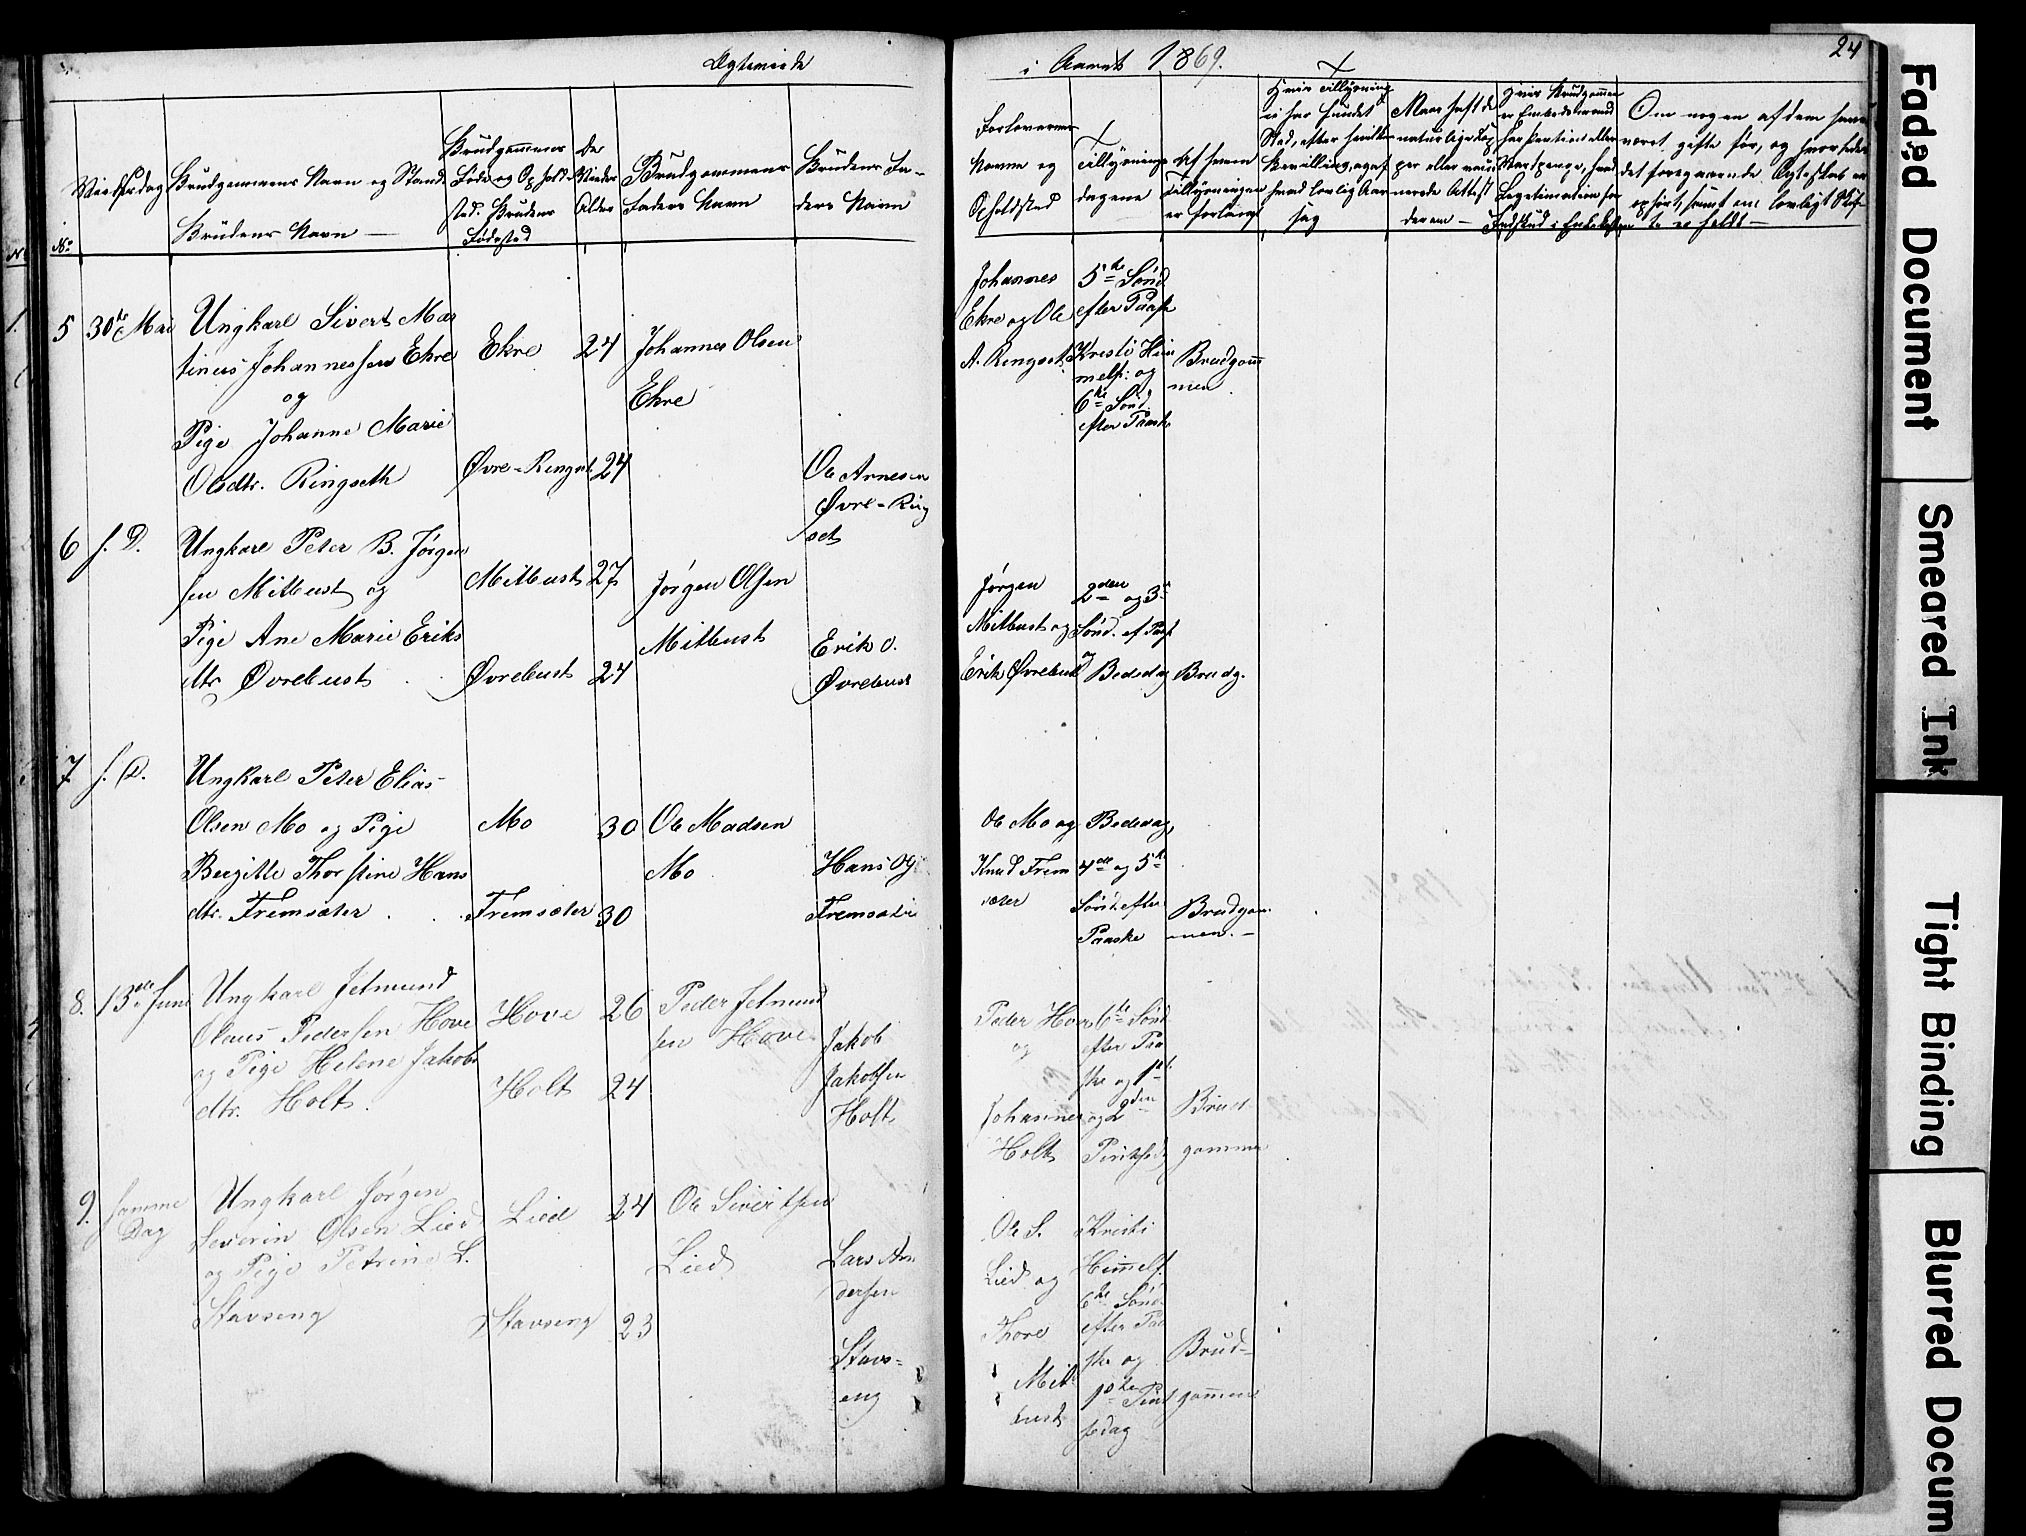 Ægteviede
i Aaret 1869.
24
No
Vielsesdag
Brudgommens Navn og Stand
Brudens Navn
Brudgommens
Føde og Opholds
sted. Brudens
Fødested
De
Viedes
Alder
Brudgommens
Faders Navn
Brudens Fa-
ders Navn
Forlovernes
Navne og
Opholdsted
Tillysnings
dagene
Af hvem
Tillysningen
er forlangt
Hvis Tillysning
ei har fundet
Sted, efter hvilken
Bevilling, og af
hvad lovlig Aar
sag
Om nogen af dem have
været gifte før, og hvorledes
det foregaaende Ægteskab er
5 30te Mai
Ungkarl Sivert Mar
tinus Johannessen Ekre
og
Pige Johanne Marie
Olsdtr. Ringseth
Ekre 24
Øvre-Ringset 24
Johannes Olsen
Ekre
Ole Arnesen
Øvre-Ring
set
Johannes
Ekre og Ole
A. Ringset
5te Sønd
efter Paaske
Kristi Him
melf: og
6te Sønd.
efter Paaske
Brudgom
men.
6 s. D.
Ungkarl Peter B. Jørgen
sen Mitbust og
Pige Ane Marie Eriks
dtr Øvrebust
Mitbust 27
Øvrebust 24
Jørgen Olsen
Mitbust
Erik O.
Øvrebust
Jørgen
Mitbust og
Erik Øvrebust
2den og 3
Sønd. ef Paask
og Bededag
Brudg.
7 s. D.
Ungkarl Peter Elias
Olsen Mo og Pige
Bergitte Thorstine Hans
dtr. Fremsæter
Mo 30
Fremsæter 30
Ole Madsen
Mo
Hans
Fremsæter
Ole Mo og
Knud Frem
sæter
Bededag,
4de og 5te
Sønd. efter
Paaske
Brudgom
men.
8. 13de Juni
Ungkarl Jetmund
Olaus Pedersen Hove
og Pige Helene Jakobs
dtr. Holt.
Hove 26
Holt 24
Peder Jetmund
sen Hove
Jakob
Jakobsen
Holt
Peder Hove
og
Johannes
Holt
6te Sønd
efter Paa
ske og 1ste
og 2den
Pintsedag
Brud
gommen
9. samme
Dag
Ungkarl Jørgen
Severin Olsen Lied
og Pige Petrine L.
Stavseng
Lied 24
Stavseng 23
Ole Sivertsen
Lied
Lars An
dersen
Stavs-
eng
Ole S.
Lied og
Thore
Mit
bust
Kristi
Himmelf.
6te Sønd.
efter Paa
ske og
1ste Pint
sedag
Brud-
gommen
Faded Document
Smeared Ink
Tight Binding
Blurred Docum